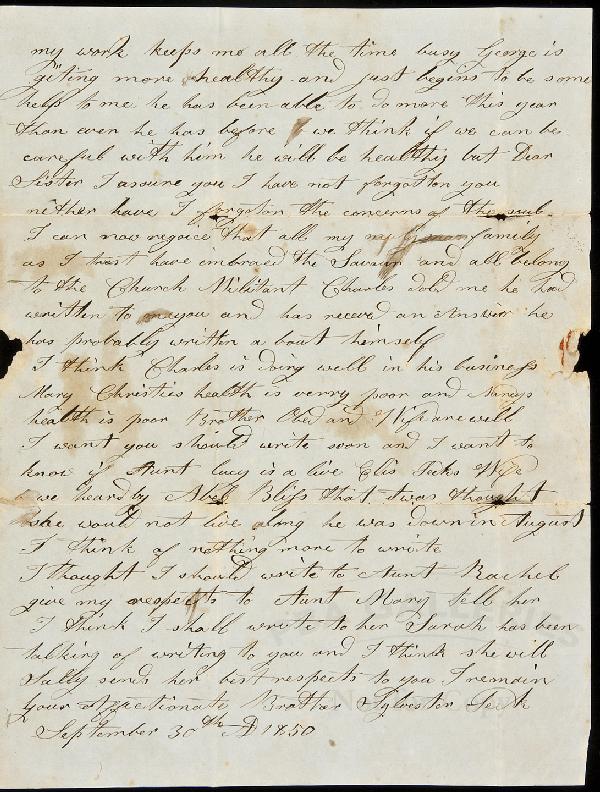 my work keeps me all the time busy George is
giting more healthy and just begins to be some
help to me he has been able to do more this year
than ever he has before we think if we can be
careful with him he will be healthy but Dear
Sister I assure you I have not forgotten you
neither have I forgoton the concerns of the
I can now rejoice that all my family
as I trust have embraced the Saviour and all belong
to the Church Militant Charles told me he had
written to you and has receved an Answer he
has probably written a bout himself
I think Charles is doing well in his business
Mary Christies health is verry poor and
health is poor Brother Obed and Wife are well
I want you should write soon and I want to
know if Aunt lucy is a live Elis Pecks Wife
we heard by Abel Bliss that twas thought
she would not live along he was down in August
I think of nothing more to write
I thought I should write to Aunt Rachel
give my respects to Aunt Mary tell her
I think I shall write to her Sarah has been
talking of writing to you and I think she will
Sally sends her best respects to you I remain
your affectionate Brother Sylvester Peck
September 30th AD 1850